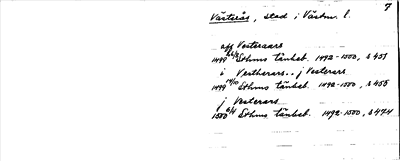 7
Västerås, stad i Västm. l.
aff Vesteraars
1499 Sthms tänkeb. 1492-1500, s 451
i Vestherars.. j Vesterars
1499 Sthms tänkeb. 1492-1500, s 455
j Vesterars
1500 Sthms tänkeb. 1492-1500, s 474